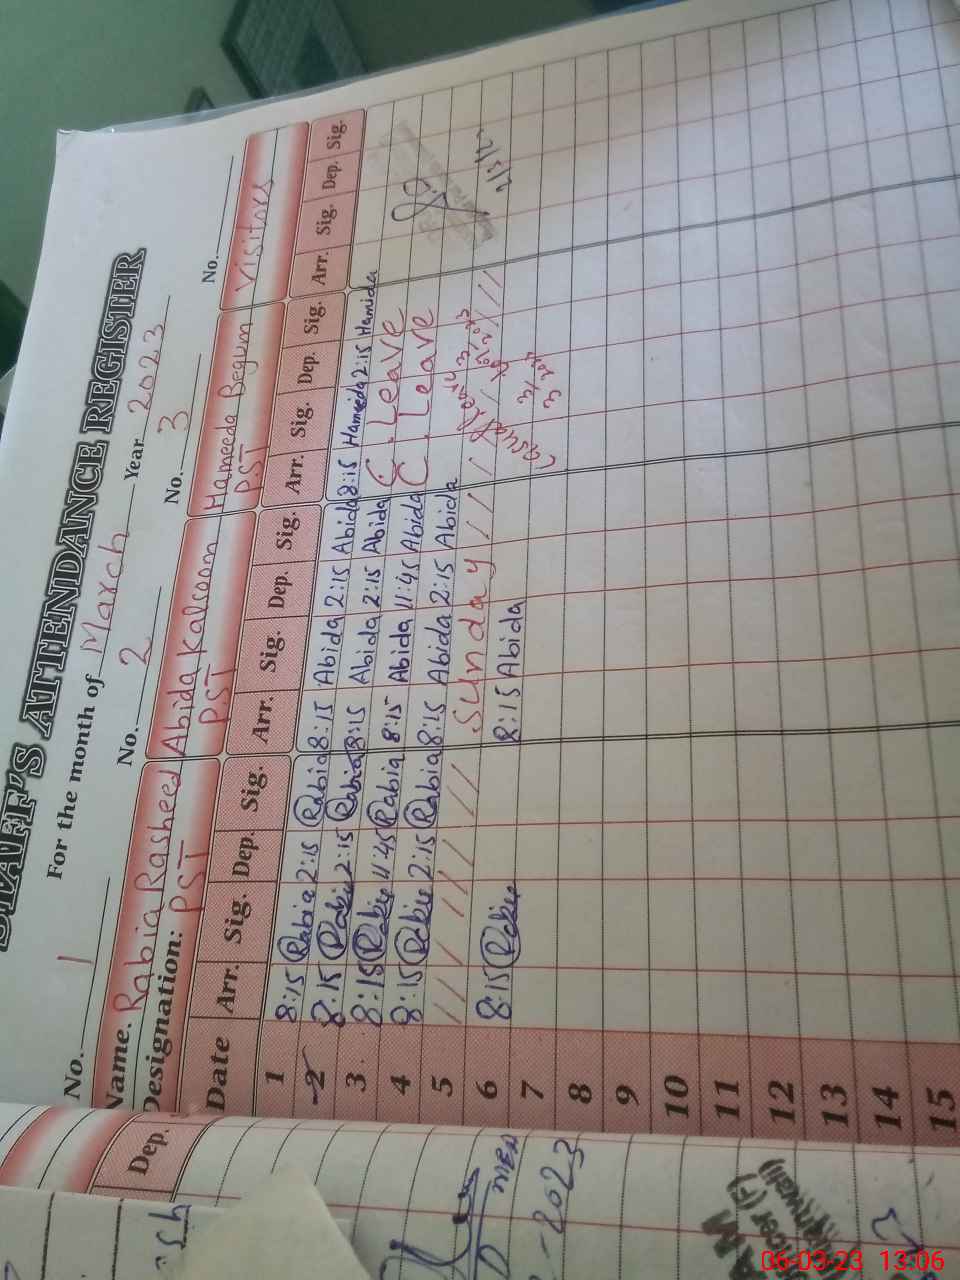 STAFF'S ATTENDANCE REGISTER
For the month of March Year 2023
No. 1 No. 2 No. 3 No.
Name. Rabia Rasheed Abida Kalsoom Hameeda Begum Visitors
Designation: PST PST PST
Date Arr. Sig. Dep. Sig. Arr. Sig. Dep. Sig. Arr. Sig. Dep. Sig. Arr. Sig. Dep. Sig.
1 8:15 Rabia 2:15 Rabia 8:15 Abida 2:15 Abida 8:15 Hameeda 2:15 Hamida
2 8:15 Rabia 2:15 Rabia 8:15 Abida 2:15 Abida C. Leave
3 8:15 Rabia 11:45 Rabia 8:15 Abida 11:45 Abida C. Leave
4 8:15 Rabia 2:15 Rabia 8:15 Abida 2:15 Abida
5 Sunday
6 8:15 Rabia 8:15 Abida
Casual
7
8
9
10
11
12
13
14
15
Dep.
-2023
06-03-23 13:06